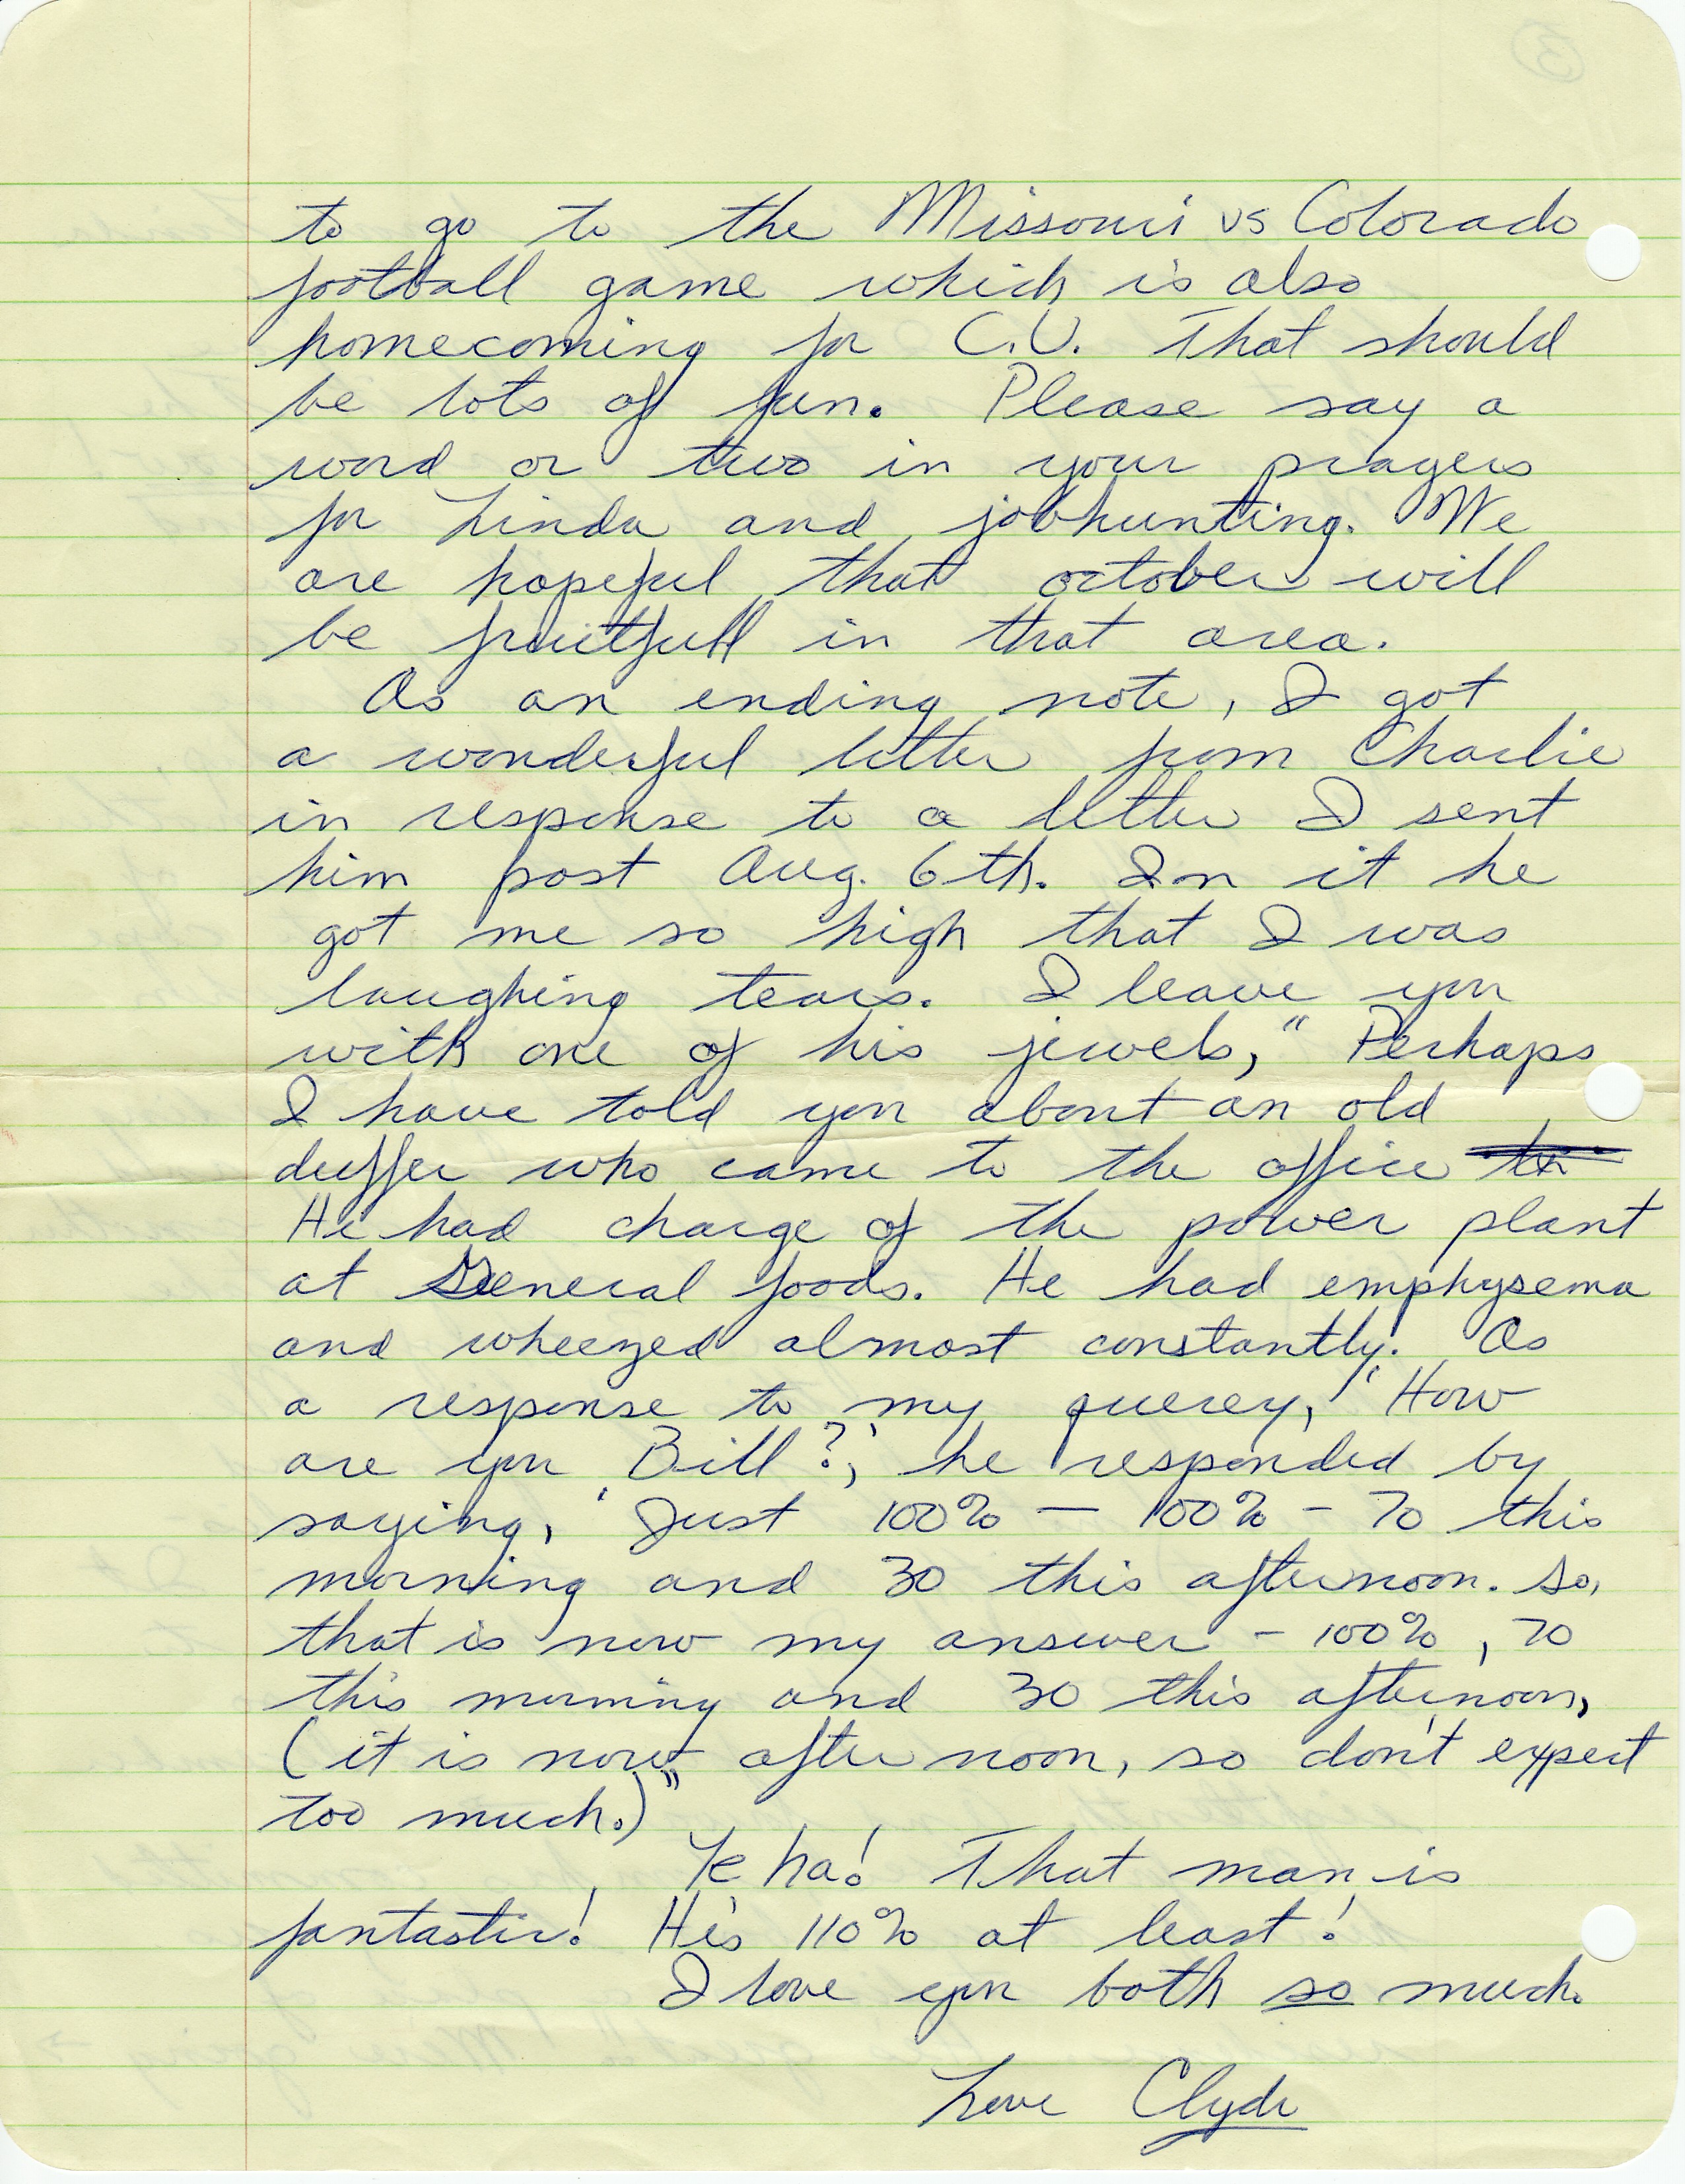 to go to the Missouri vs Colorado
football game which is also
homecoming for C.U. That should
be lots of fun. Please say a
word or two in your prayers
for Linda and jobhunting. We
are hopeful that october will
be fruitfull in that area.
As an ending note, I got
a wonderful letter from Charlie
in response to a letter I sent
him post Aug. 6th. In it he
got me so high that I was
laughing tears. I leave you
with one of his jewels, "Perhaps
I have told you about an old
duffer who came to the office
He had charge of the power plant
at General foods. He had emphysema
and wheezed almost constantly. As
a response to my querey, 'How
are you Bill?,' he responded by
saying, 'Just 100% — 100% - 70 this
morning and 30 this afternoon. So,
that is now my answer - 100%, 70
this morning and 30 this afternoon,
(it is now after noon, so don't expect
too much.)"
Ye ha! That man is
fantastic! He's 110% at least!
I love you both so much.
Love Clyde